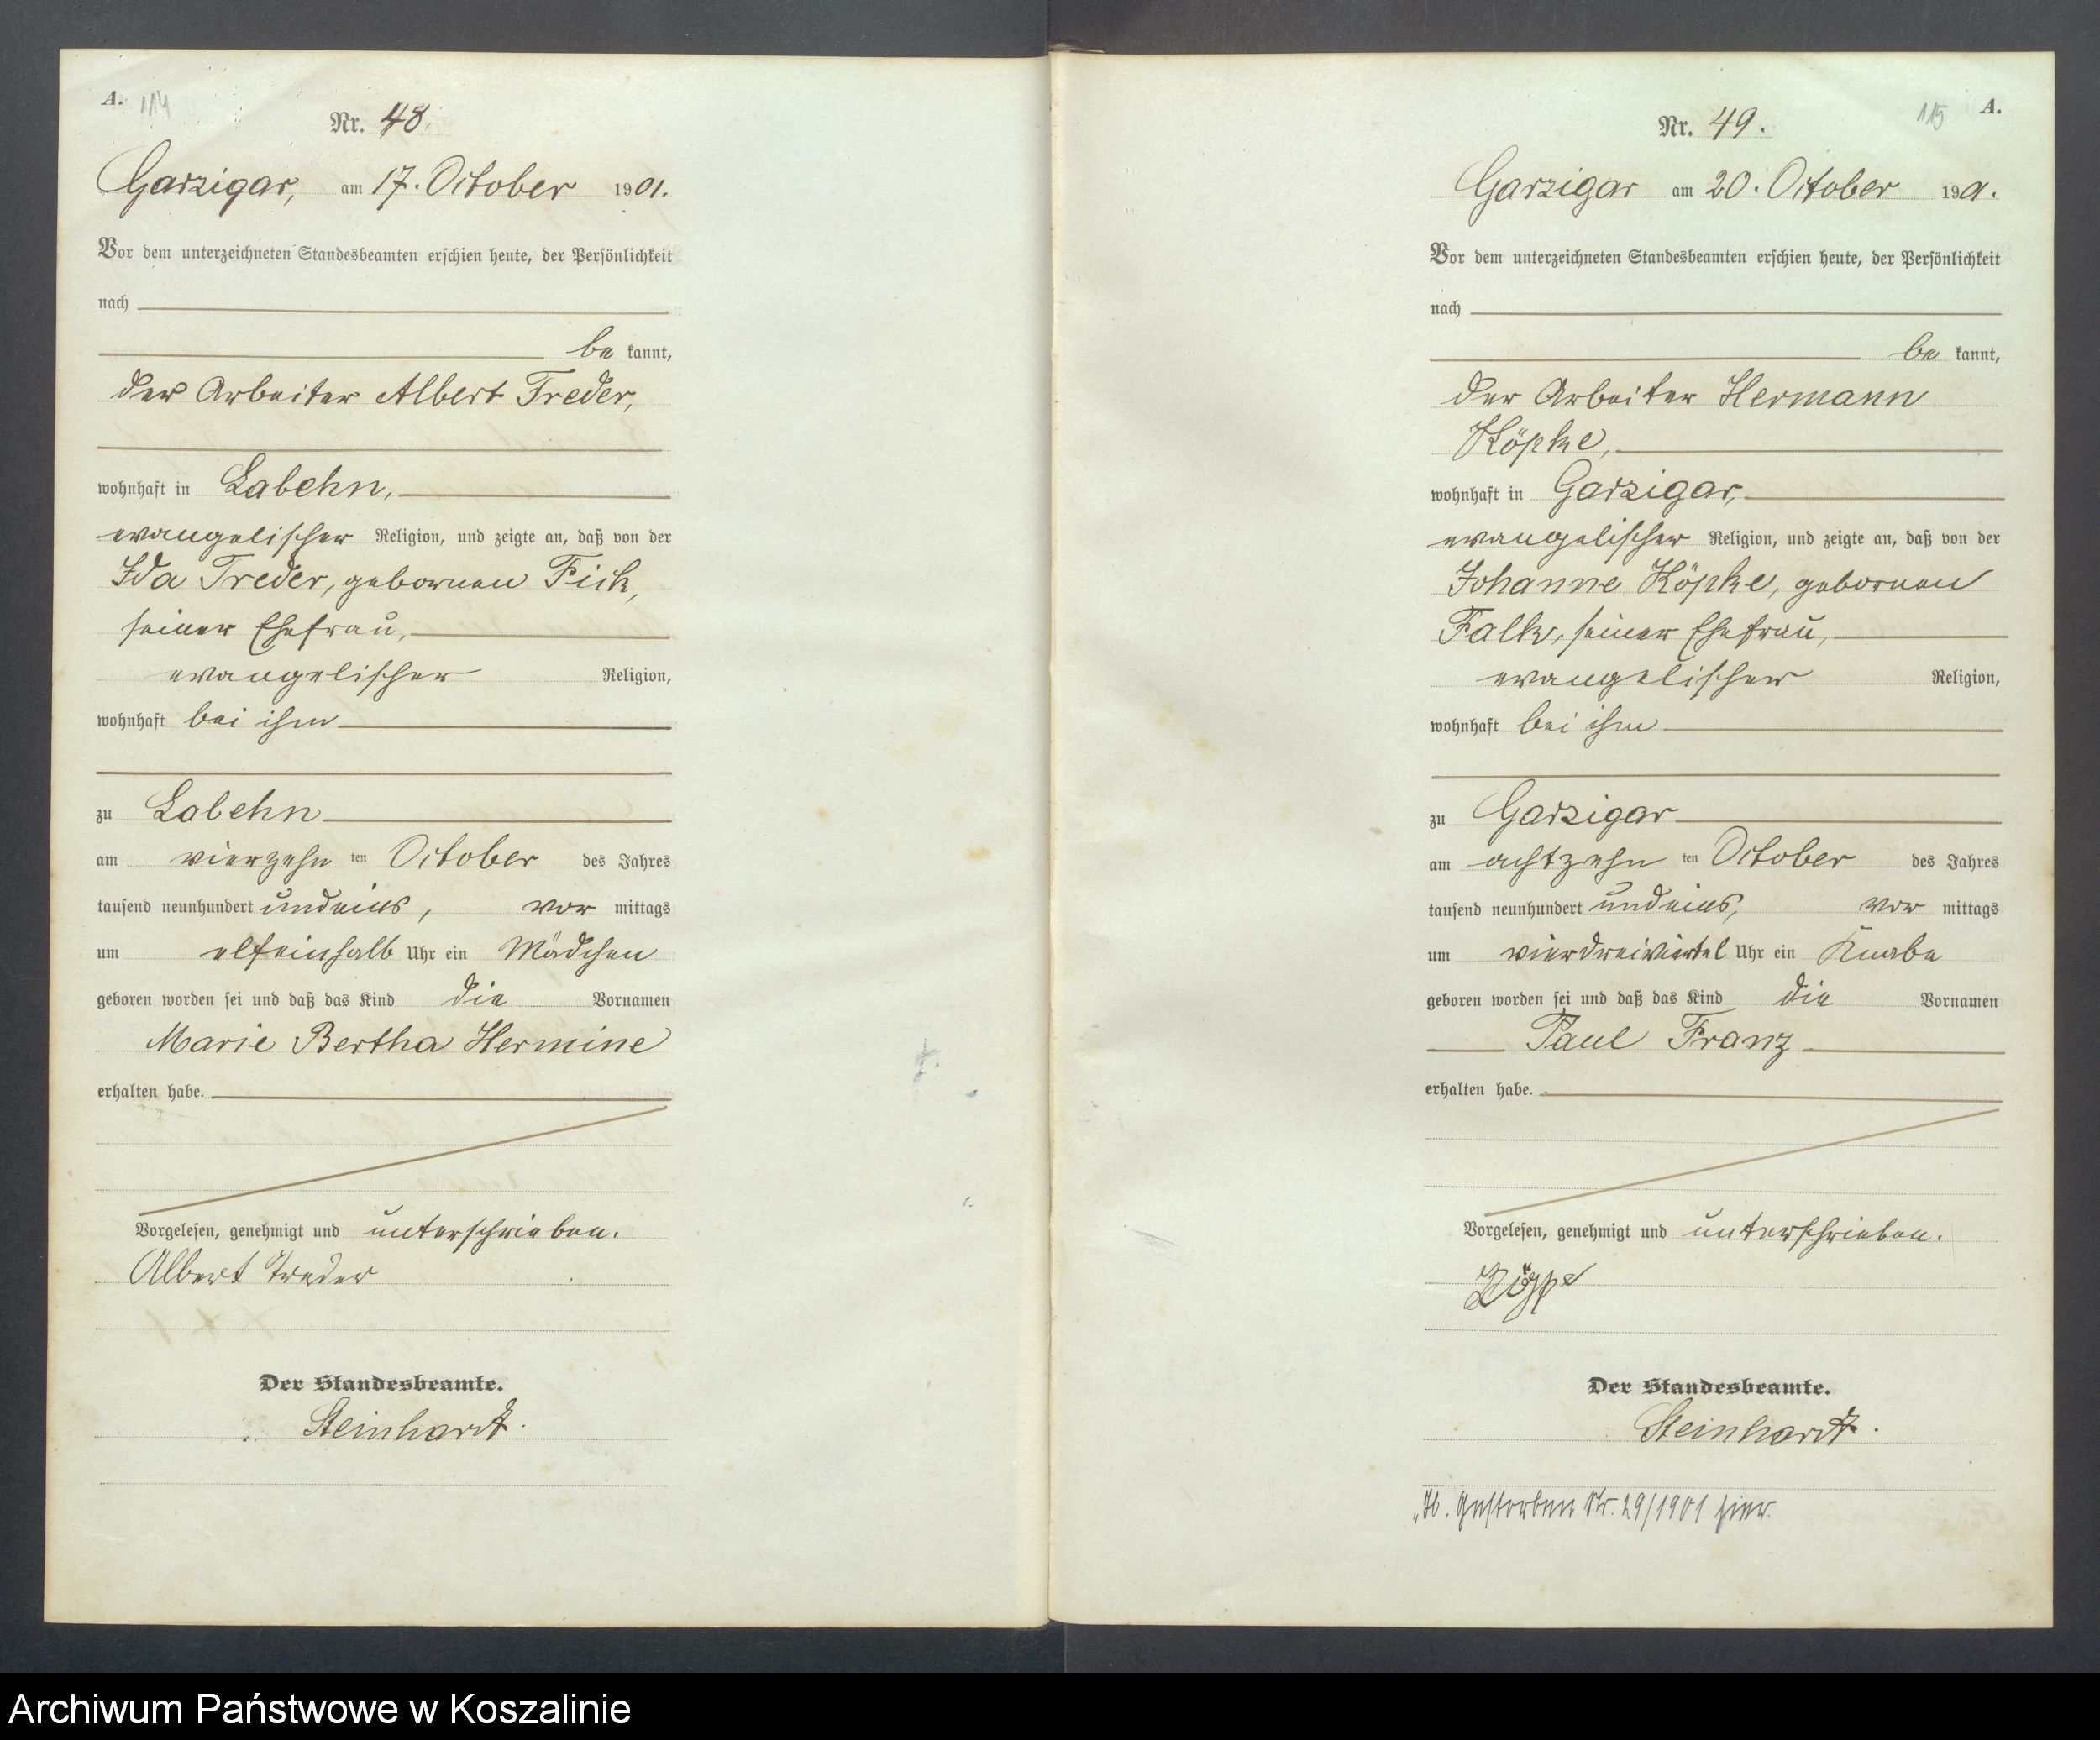 A. 114
Nr. 48.
Garzigar, am 17. October 1901.
Vor dem unterzeichneten Standesbeamten erschien heute, der Persönlichkeit
nach
be kannt,
der Arbeiter Albert Treder,
wohnhaft in Labehn,
evangelischer Religion, und zeigte an, daß von der
Ida Treder, geborenen Fick,
seiner Ehefrau,
evangelischer Religion,
wohnhaft bei ihm
zu Labehn
am vierzehn ten October des Jahres
tausend neunhundert undeins, vor mittags
um elfeinhalb Uhr ein Mädchen
geboren worden sei und daß das Kind die Vornamen
Marie Bertha Hermine
erhalten habe.
Vorgelesen, genehmigt und unterschrieben.
Albert Treder
Der Standesbeamte.
Steinhardt.
115 A.
Nr. 49.
Garzigar am 20. October 1901.
Vor dem unterzeichneten Standesbeamten erschien heute, der Persönlichkeit
nach
be kannt,
der Arbeiter Hermann
Köpke,
wohnhaft in Garzigar,
evangelischer Religion, und zeigte an, daß von der
Johanne Köpke, geborenen
Falk, seiner Ehefrau,
evangelischer Religion,
wohnhaft bei ihm
zu Garzigar
am achtzehn ten October des Jahres
tausend neunhundert undeins, vor mittags
um vierdreiviertel Uhr ein Knabe
geboren worden sei und daß das Kind die Vornamen
Paul Franz
erhalten habe.
Vorgelesen, genehmigt und unterschrieben.
Der Standesbeamte.
Steinhardt.
Gestorben Nr. 29/1901 hier.
Archiwum Państwowe w Koszalinie